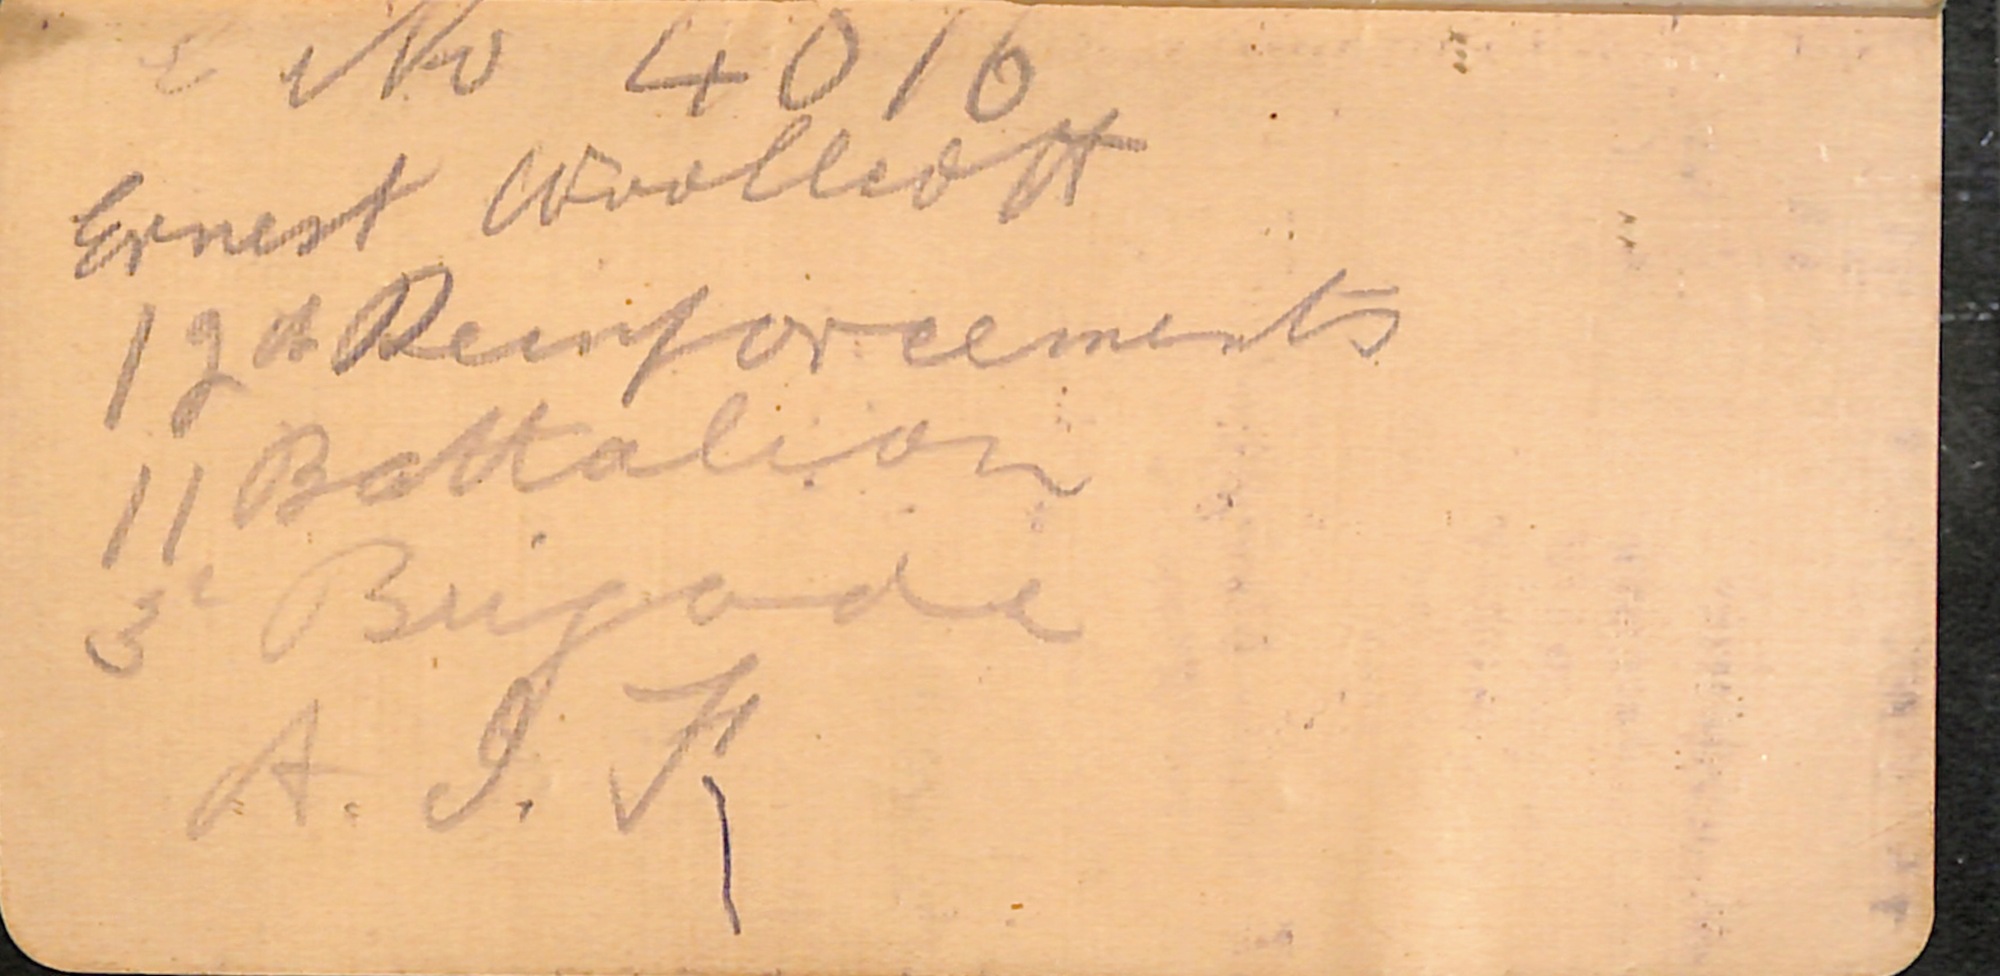 No 4016
Ernest Woollcott
12th Reinforcements
11 Battalion
3rd Brigade
A. I. F